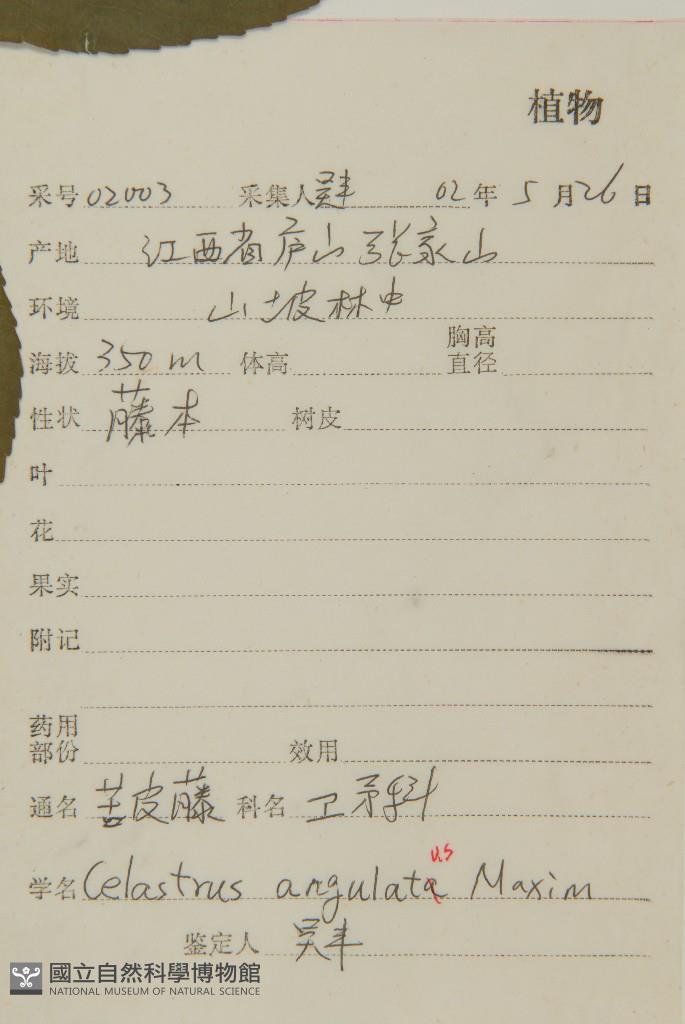 植物
采号 02003 采集人 吴丰 02 年 5 月 26 日
产地 江西省庐山张家山
环境 山坡林中
海拔 350 m 体高 胸高直径
性状 藤本 树皮
叶
花
果实
附记
药用部份 效用
通名 苦皮藤 科名 卫矛科
us
学名 Celastrus angulata Maxim
鉴定人 吴丰
國立自然科學博物館
NATIONAL MUSEUM OF NATURAL SCIENCE